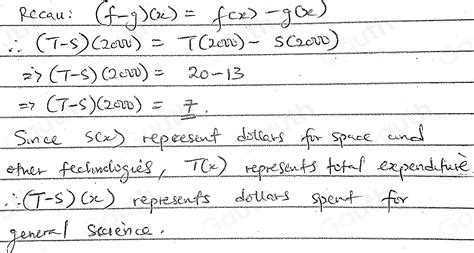 Recall: (f-g)(x) = f(x) - g(x)
∴ (T-S)(2000) = T(2000) - S(2000)
=> (T-S)(2000) = 20-13
=> (T-S)(2000) = 7.
Since S(x) represent dollars for space and
other technologies, T(x) represents total expenditure
∴ (T-S)(x) represents dollars spent for
general science.